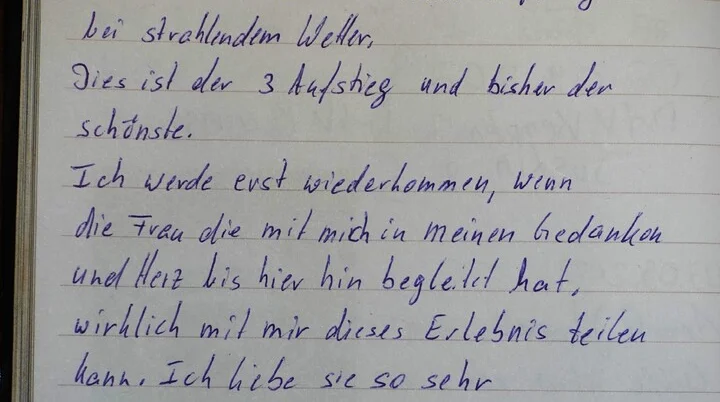 bei strahlendem Wetter,
Dies ist der 3 Aufstieg und bisher der
schönste.
Ich werde erst wiederkommen, wenn
die Frau die mit mich in meinen Gedanken
und Herz bis hier hin begleitet hat,
wirklich mit mir dieses Erlebnis teilen
kann. Ich liebe sie so sehr